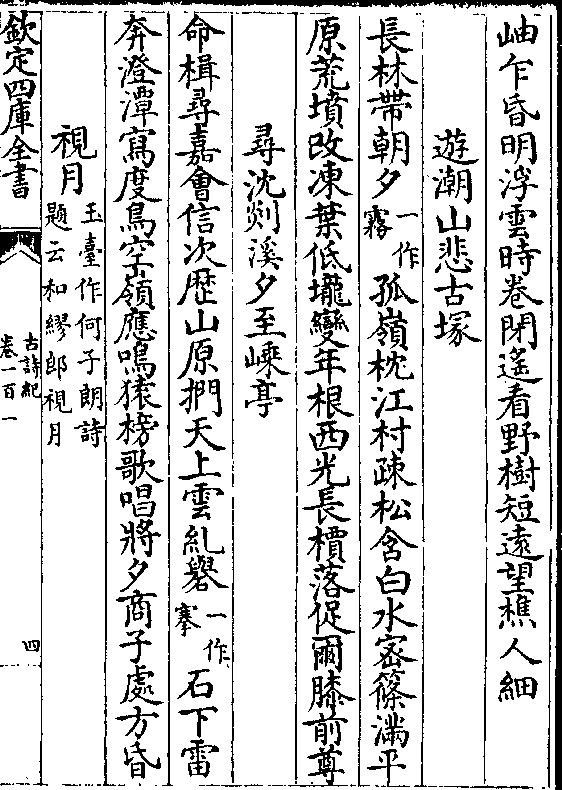 岫乍昏明浮雲時卷閉遙看野樹短遠望樵人細
遊潮山悲古塚
長林帶朝夕一作霧孤嶺枕江村疎松含白水宻篠滿平
原荒墳改凍葉低壠變年根西光長檟落促爾膝前尊
尋沈剡溪夕至嵊亭
命楫尋嘉會信次歴山原捫天上雲糺礜一作搴石下雷
奔澄潭寫度鳥空嶺應鳴猿榜歌唱將夕商子處方昏
視月玉臺作何子朗詩題云和繆郎視月
欽定四庫全書
古詩紀
卷一百一
四